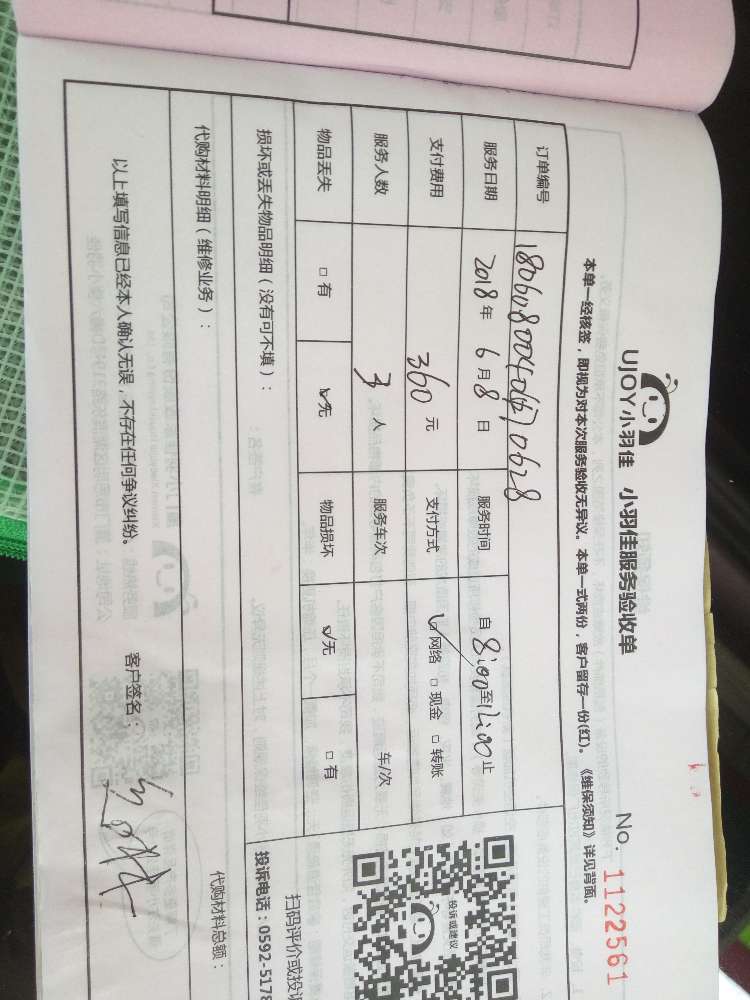 UJOY小羽佳 小羽佳服务验收单 No. 1122561
本单一经核签，即视为对本次服务验收无异议。本单一式两份，客户留存一份(红)。《维保须知》详见背面。
订单编号
服务日期 2018年 6月8日 服务时间 自 8:00至11:00止
支付费用 360元 支付方式 ☑网络 □现金 □转账
服务人数 3人 服务车次 车/次
物品丢失 □有 ☑无 物品损坏 ☑无 □有
损坏或丢失物品明细（没有可不填）：
投诉或建议
扫码评价或投
投诉电话：0592-5178
代购材料明细（维修业务）： 代购材料总额：
以上填写信息已经本人确认无误，不存在任何争议纠纷。 客户签名：